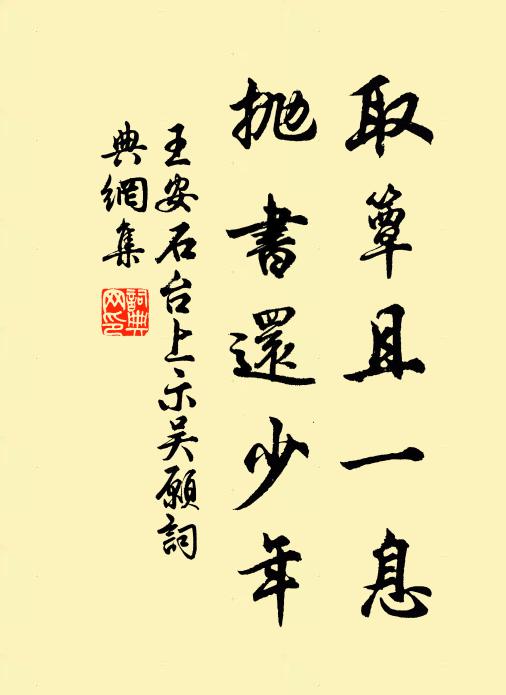 取簟且一息
抛書還少年
王安石台上示吴願詞
典網集
詞典
网印